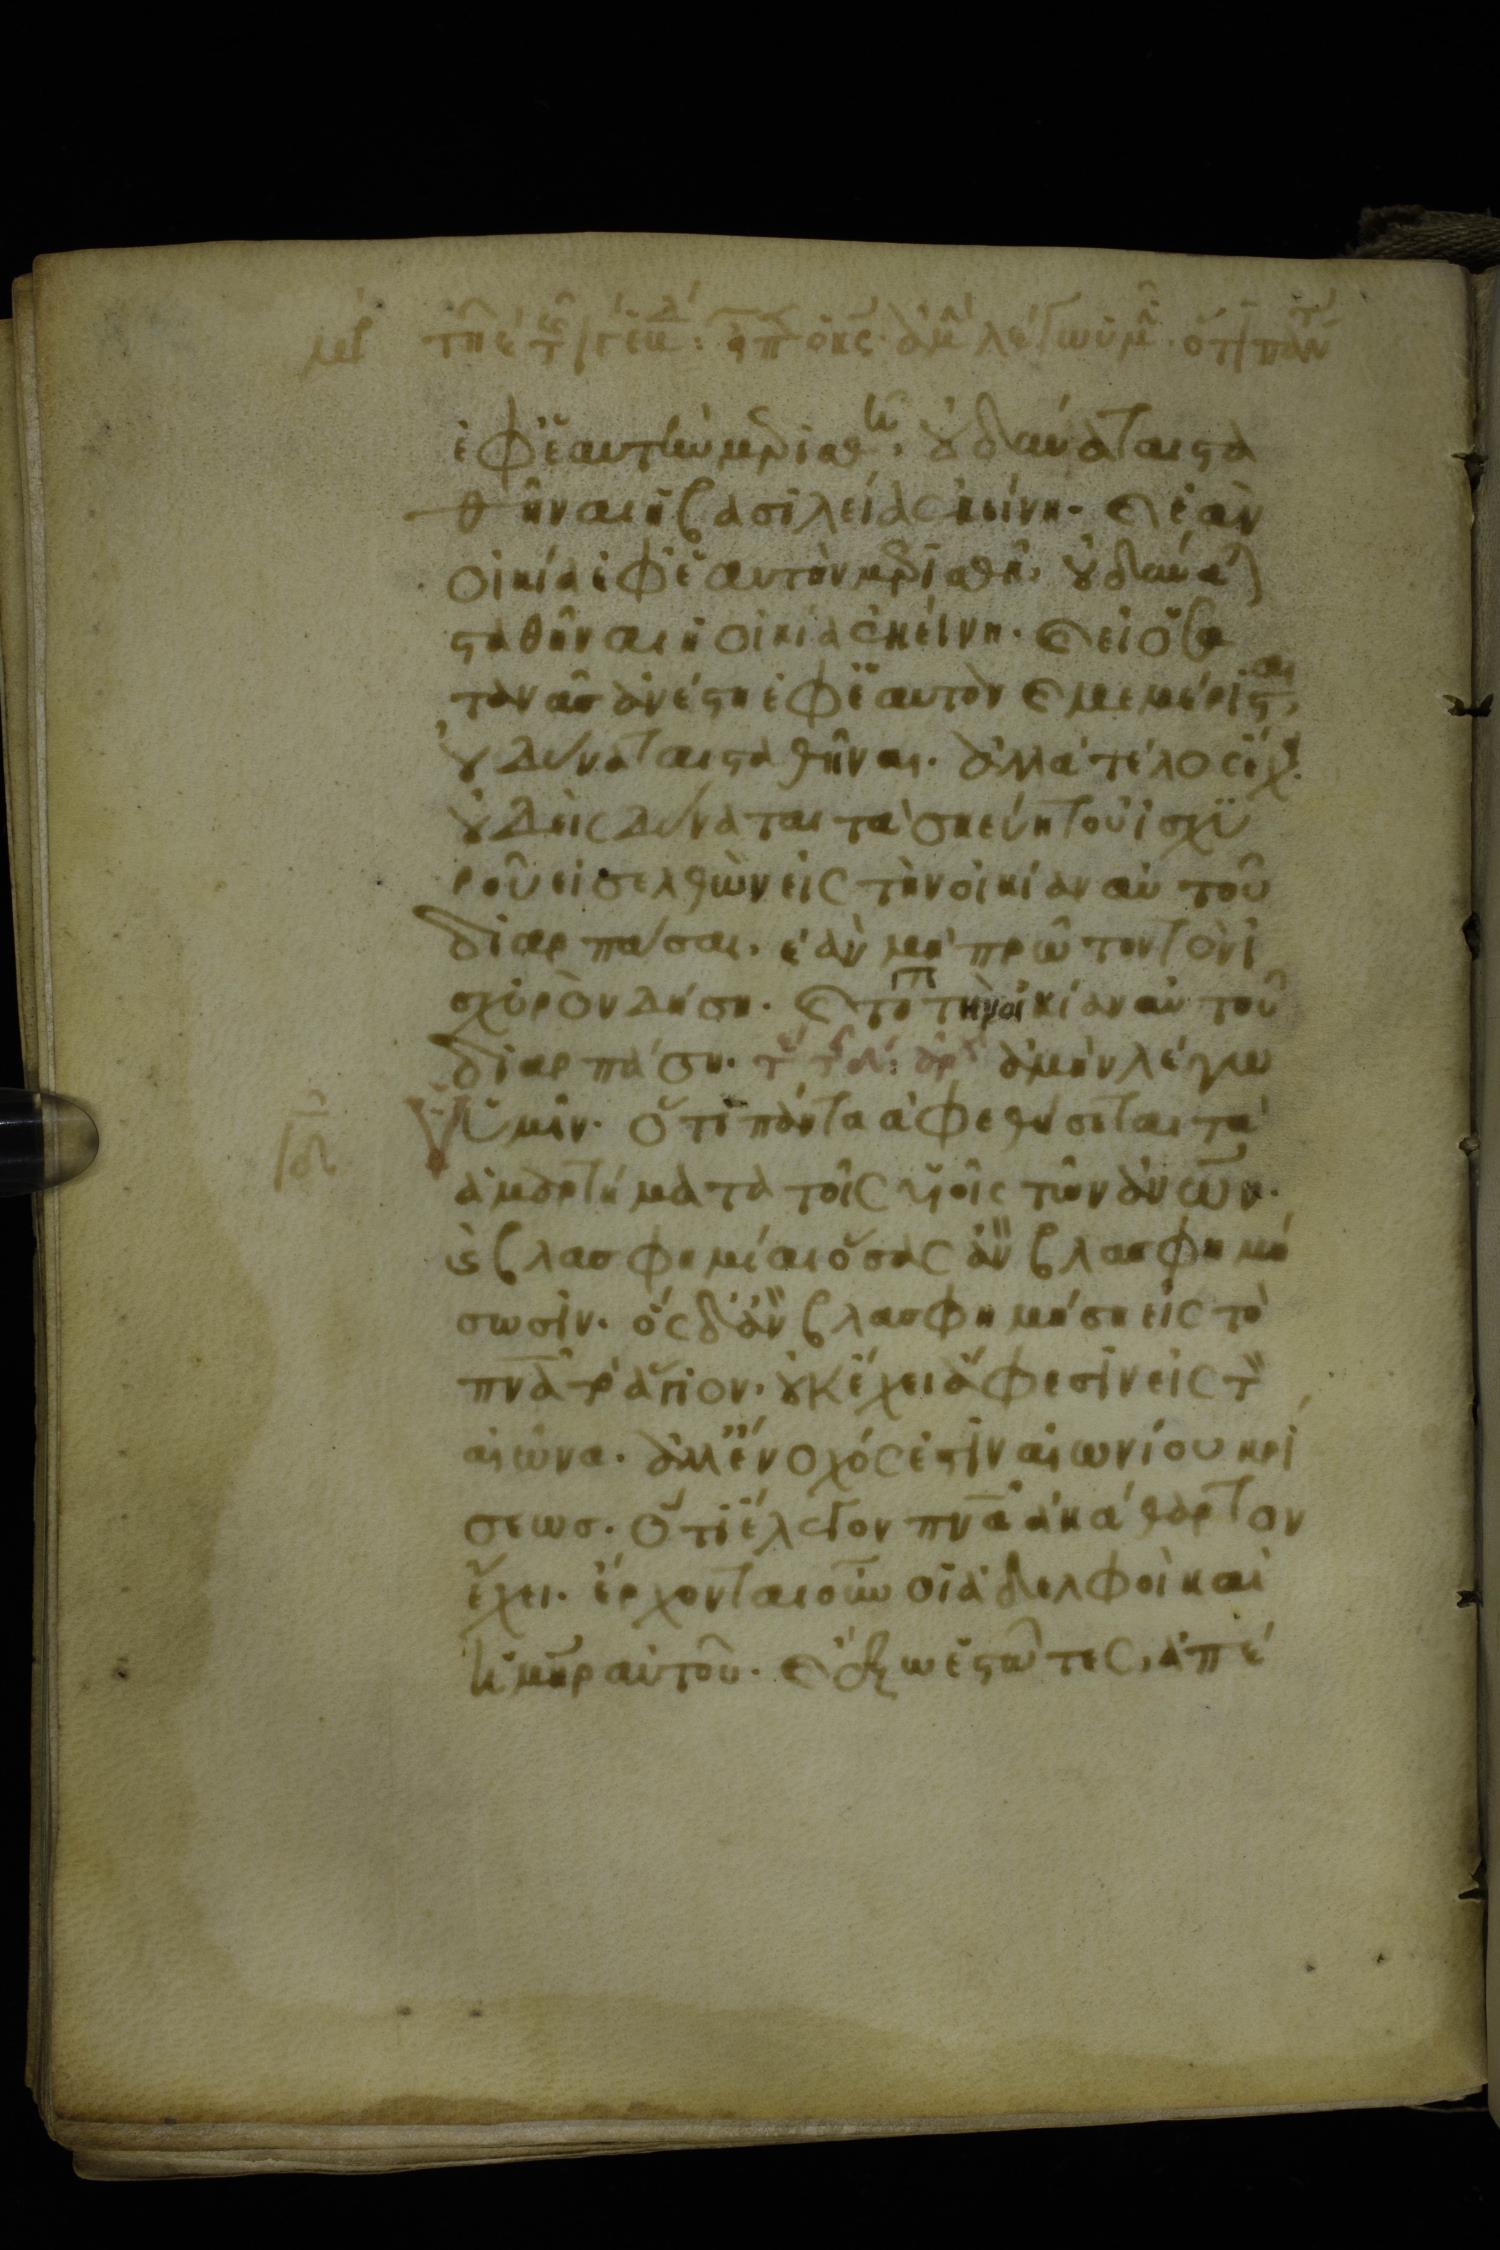 ἐφ ἑαυτὴν μερισθῆ, οὐ δύναται στα
θῆναι ἡ βασιλεία ἐκείνη. καὶ ἐὰν
οἰκία ἐφ ἑαυτὴν μερισθῆ, οὐ δύνα
σταθῆναι ἡ οἰκία ἐκείνη. καὶ εἰ ὁ σα
τανᾶσ ἀνέστη ἐφ ἑαυτὸν καὶ μεμέρισται,
οὐ δύναται σταθῆναι. ἀλλὰ τέλος ἔχ
οὐδεὶς δύναται τὰ σκεύη τοῦ ἰσχυ
ροῦ εἰσελθὼν εἰς τὴν οἰκίαν αὐτοῦ
διαρπάσαι, ἐὰν μὴ πρῶτον τὸν ἰ
σχυρὸν δήση. καὶ τότε τὴν οἰκίαν αὐτοῦ
διαρπάση. ἀμὴν λέγω
ὑμῖν. ὅτι πάντα ἀφεθήσεται τὰ
ἁμαρτήματα τοῖς υἱοῖς τῶν ἀνων.
καὶ βλασφημίαι ὅσας ἂν βλασφημή
σωσιν. ὃς δ ἂν βλασφημήση εἰς τὸ
πνα τὸ ἅγιον, οὐκ ἔχει ἄφεσιν εἰς τὸν
αἰῶνα. ἀλλ ἔνοχός ἐστιν αἰωνίου κρί
σεωσ. ὅτι ἔλεγον πνα ἀκάθαρτον
ἔχει. ἔρχονται οὖν οἱ ἀδελφοὶ καὶ
ἡ μηρ αὐτοῦ. καὶ ἔξω ἑστῶτες, ἀπέ